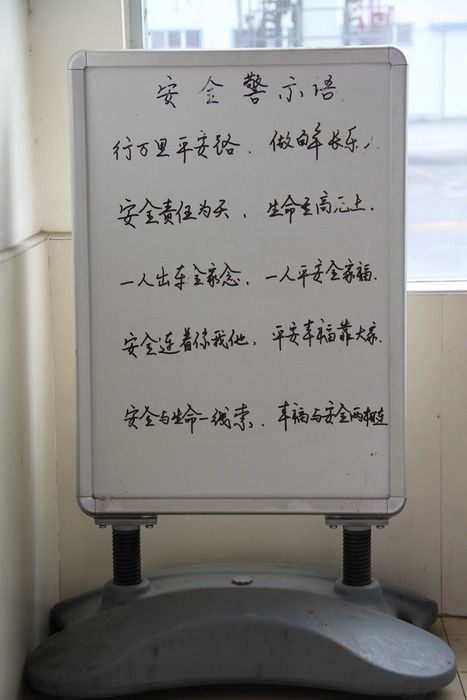 安全警示语
行万里平安路、做百年长乐人
安全责任为天，生命至高无上.
一人出车全家念、一人平安全家福.
安全连着你我他，平安幸福靠大家.
安全与生命一线索，幸福与安全两相连